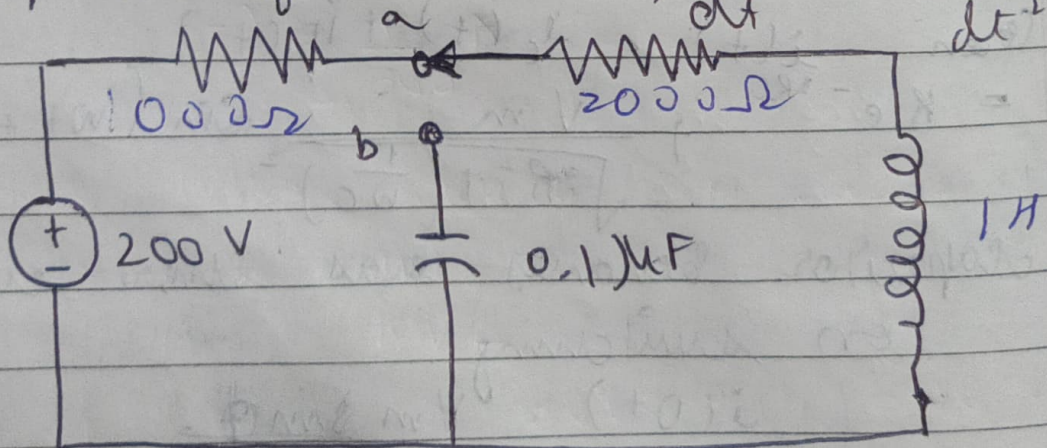 a
dt
dt²
1000Ω
2000Ω
b
+
-
200 V
0.1 μF
1 H